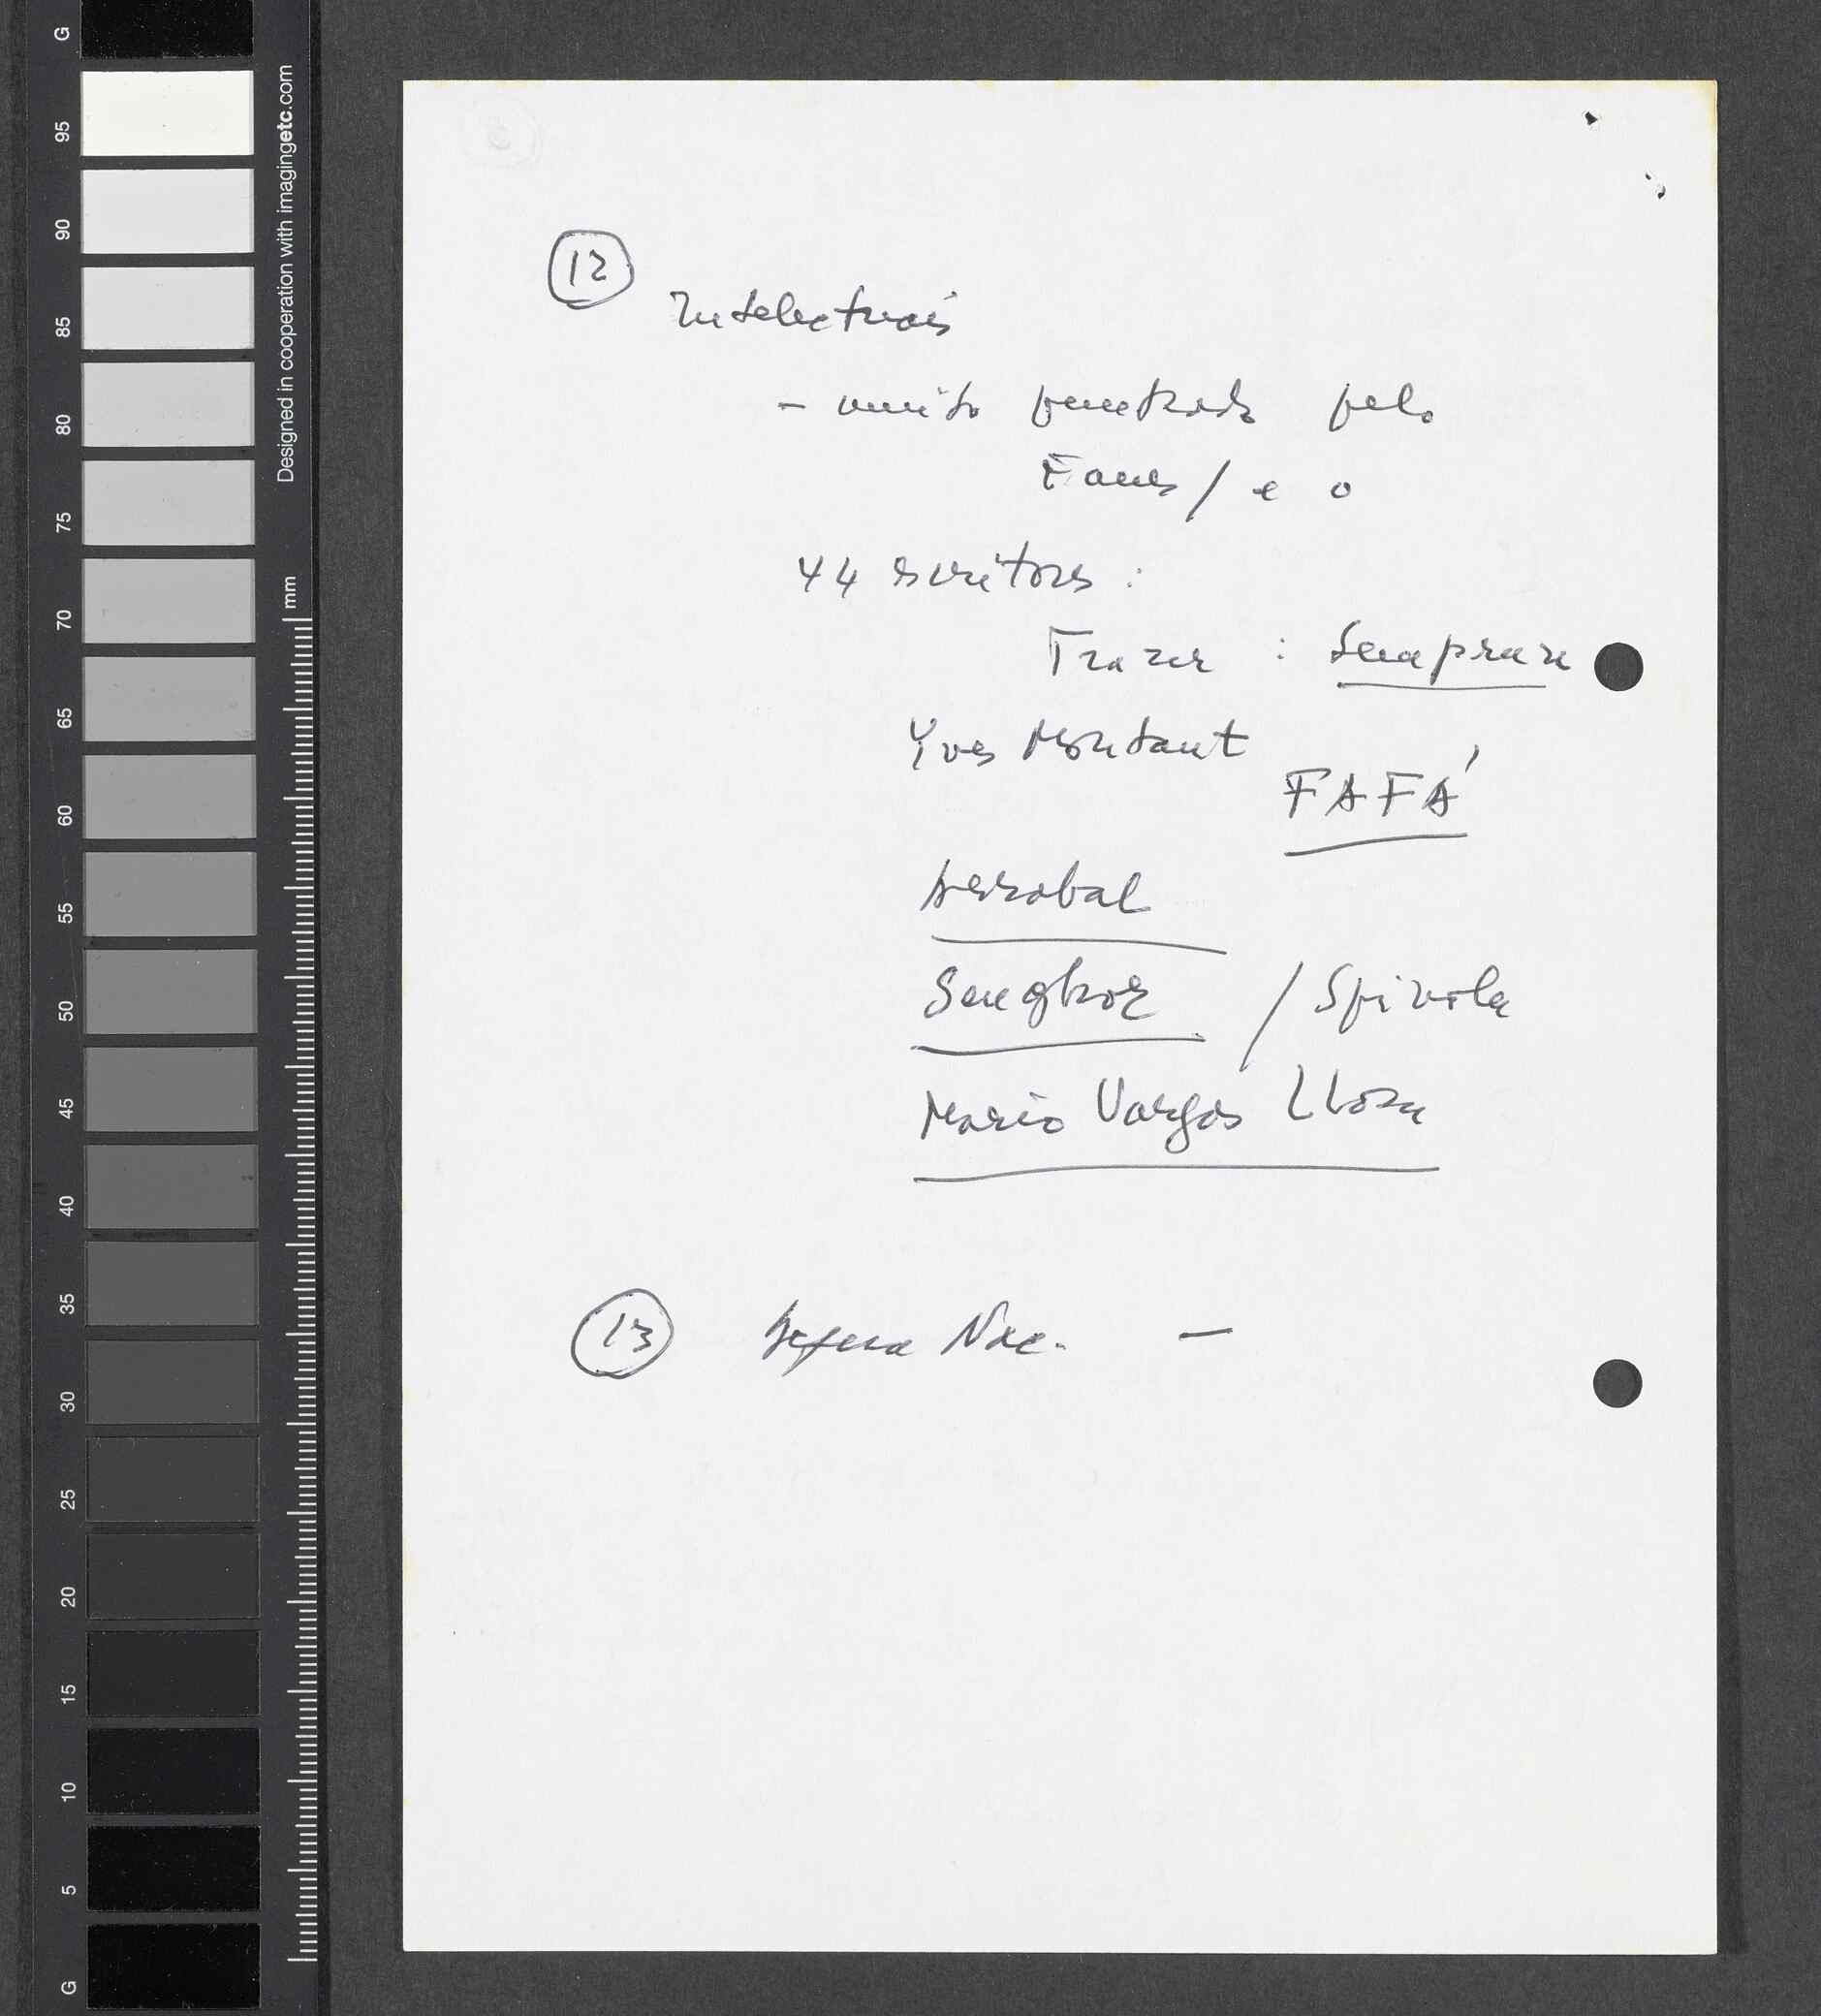 12
Intelectuais
- muito penetrado pelo
Eanes / e o
44 escritores :
Trazer : Semprun
Yves Montant
FAFÁ
Arrabal
Senghor / Spinola
Mario Vargas Llosa
13 Defesa Nac. —
Designed in cooperation with imagingetc.com
mm
G
95
90
85
80
75
70
65
60
55
50
45
40
35
30
25
20
15
10
5
G